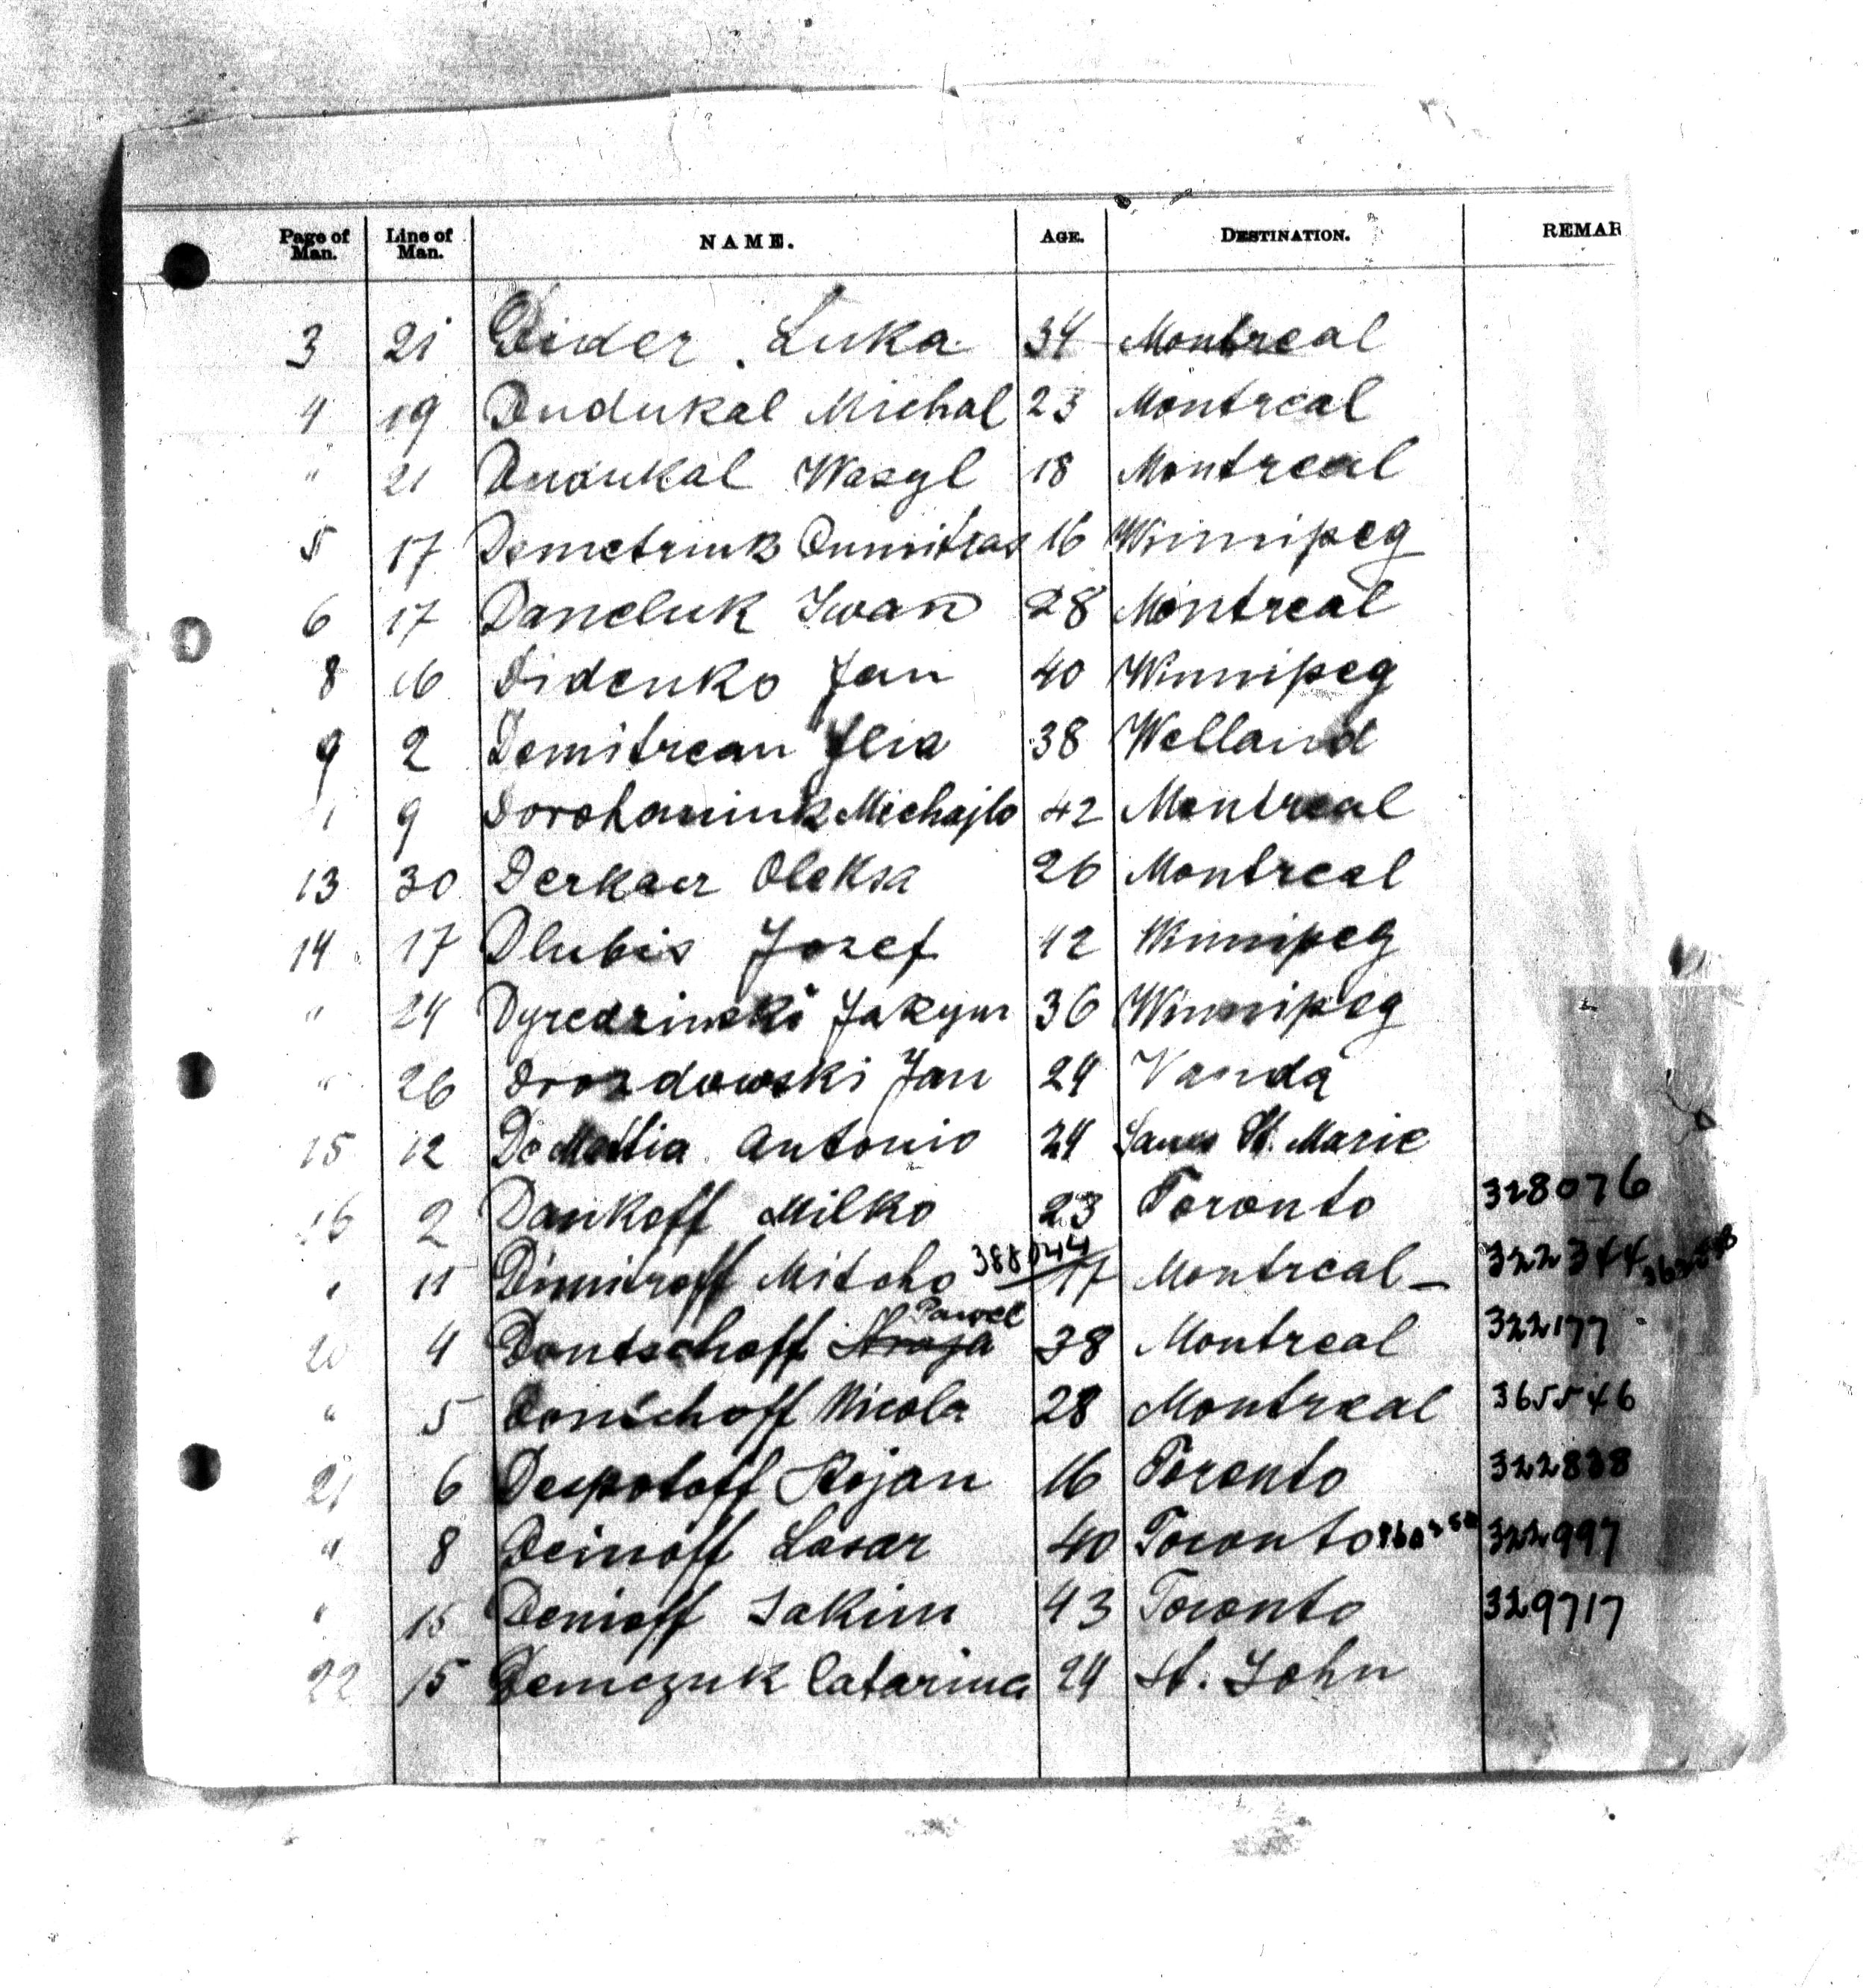 Page of Man. Line of Man. NAME. AGE. DESTINATION. REMAR
3 21 Dider Luka 34 Montreal
4 19 Dudukal Michal 23 Montreal
" 21 Dudukal Wasyl 18 Montreal
5 17 Demetriuk 16 Winnipeg
6 17 Daneluk Iwan 28 Montreal
8 16 Didenko Jan 40 Winnipeg
9 2 Demitrean Ilia 38 Welland
" 9 Dorohaniuk Michajlo 42 Montreal
13 30 Derkacz Oleksa 26 Montreal
14 17 Dlubis Jozef 42 Winnipeg
" 24 Dyredzinski Jakym 36 Winnipeg
" 26 Drozdowski Jan 24 Vanda
15 12 De Mattia Antonio 24 St. Marie
16 2 Dankoff Milko 23 Toronto 328076
" 11 Dimitroff Mitoho 388044 17 Montreal - 322344
Pawel
20 4 Dontschoff 38 Montreal 322177
" 5 Donschoff Nicola 28 Montreal 365546
21 6 Despotoff Stojan 16 Toronto 322838
" 8 Deinoff Lasar 40 Toronto 322997
" 15 Denioff Jakim 43 Toronto 329717
22 15 Demczuk Catarina 24 St. John